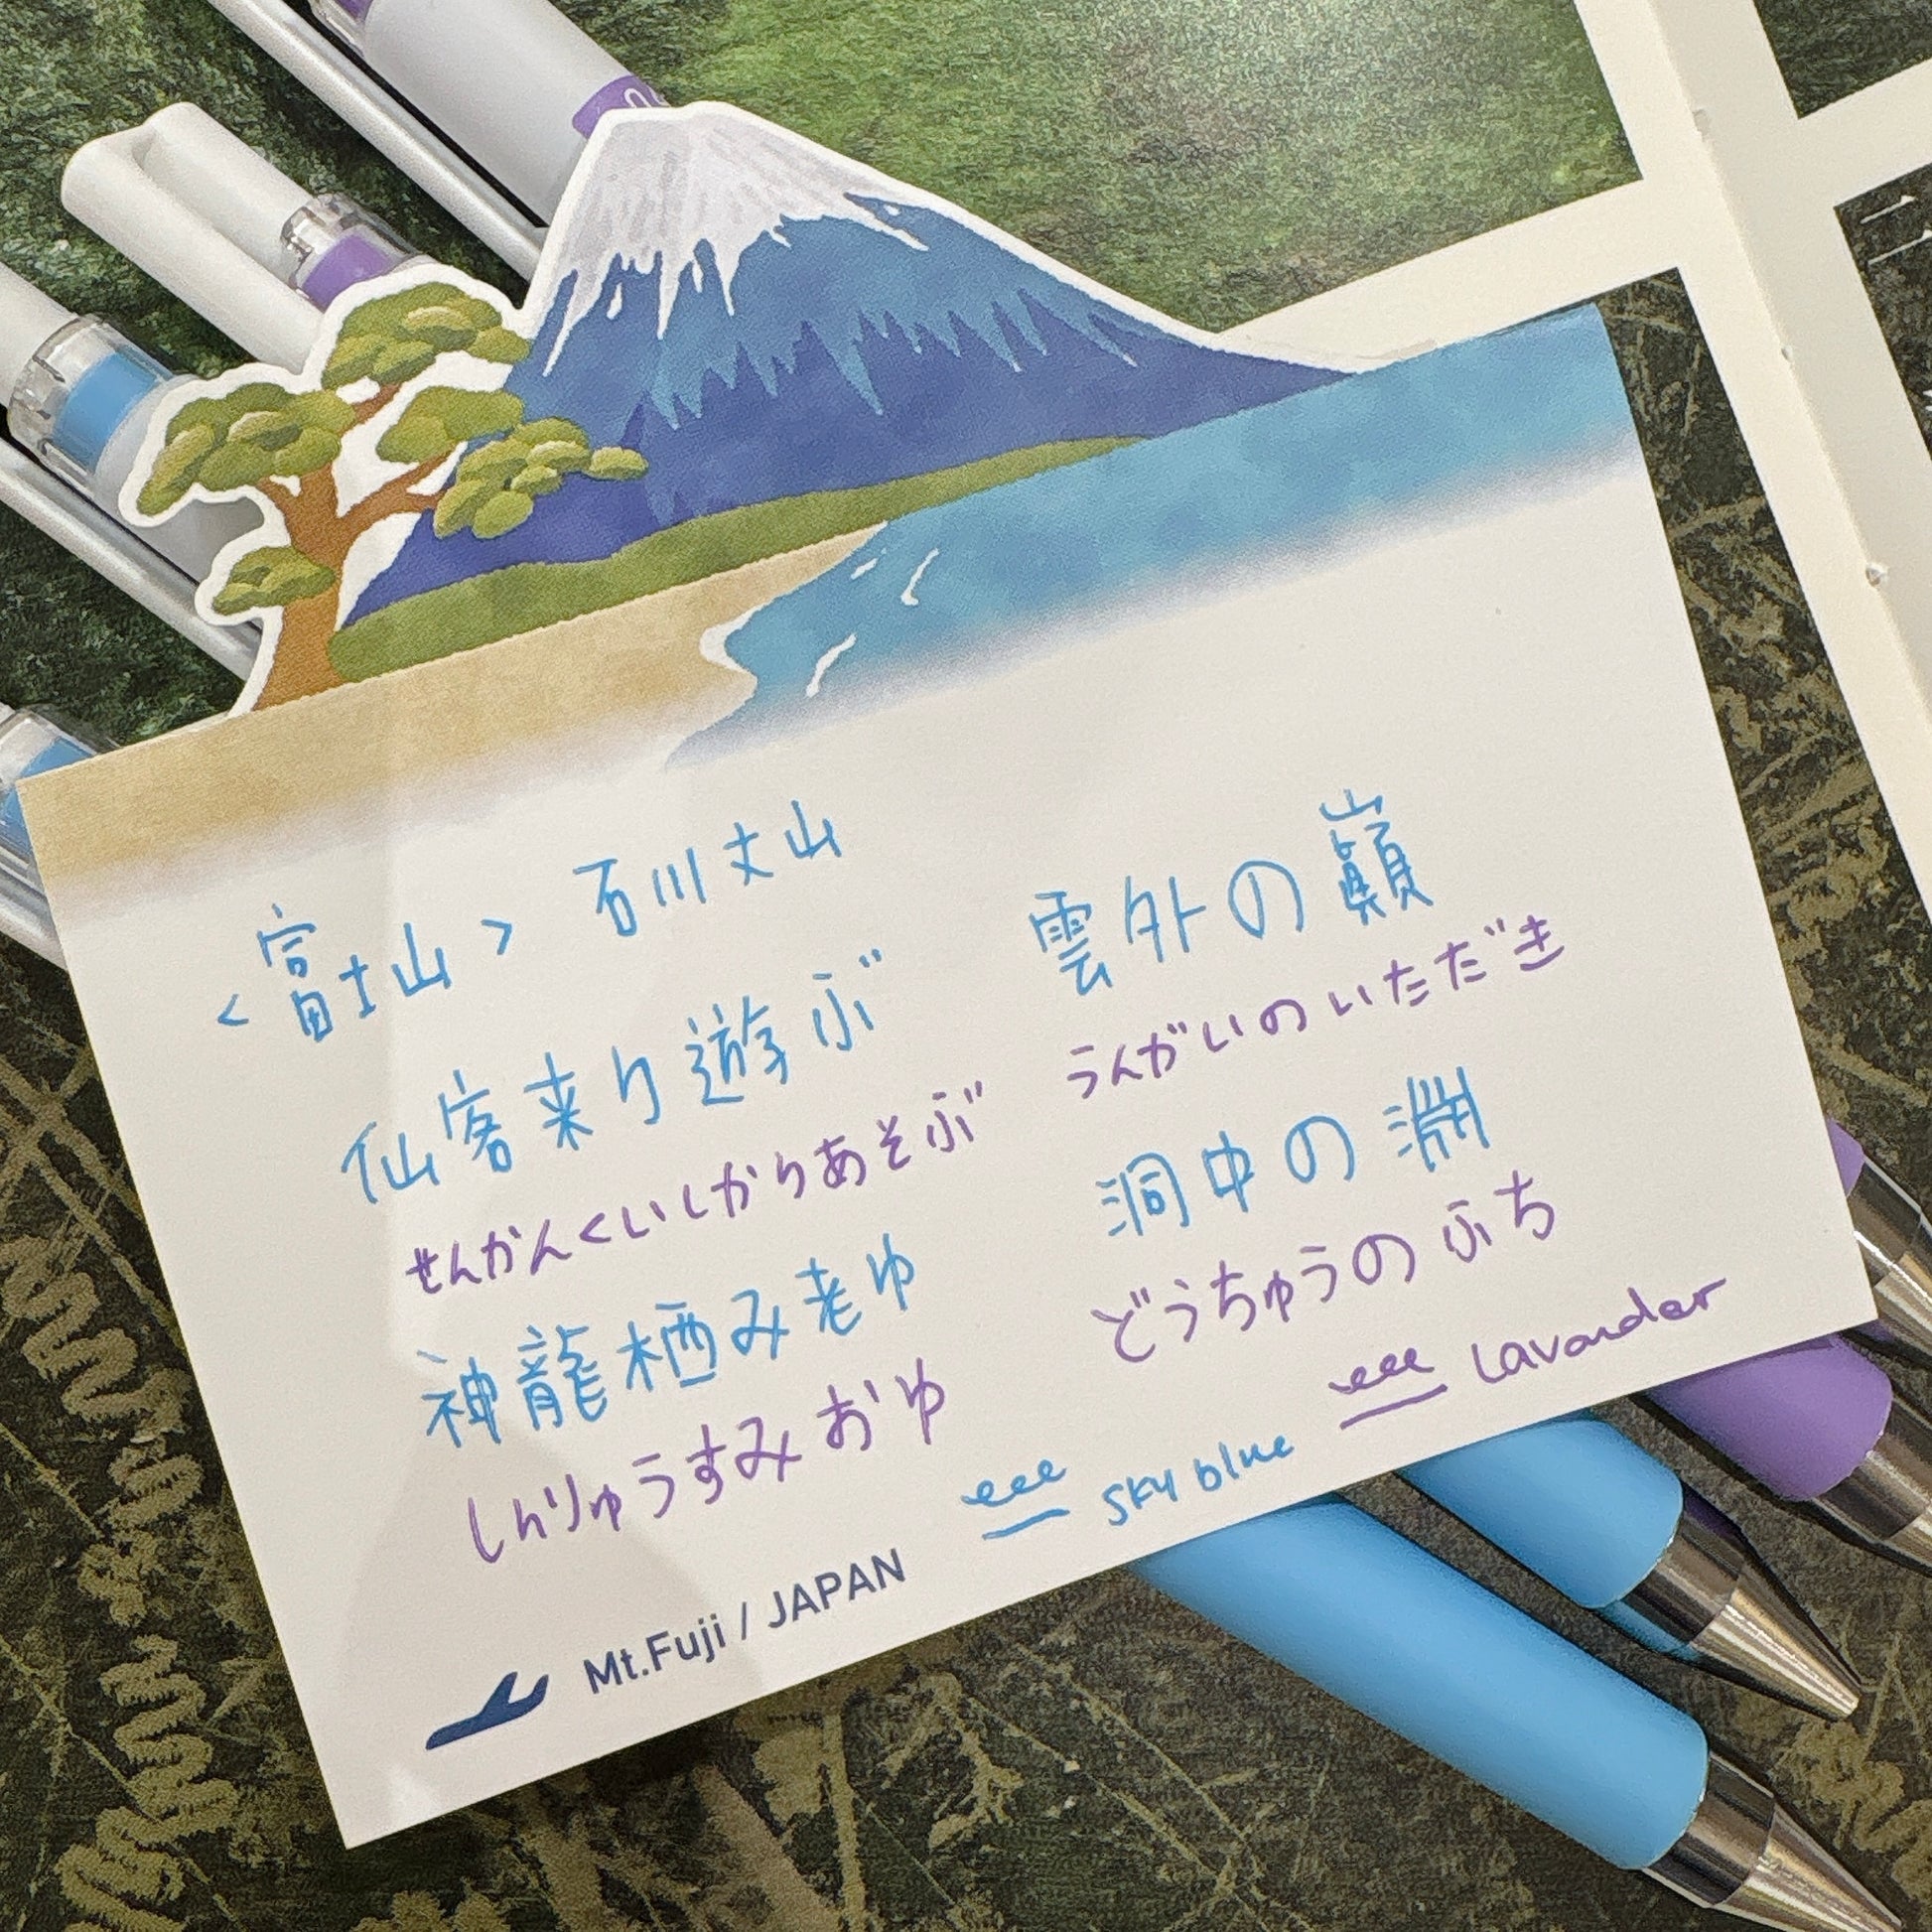 <富士山> 石川丈山
仙客来り遊ぶ
せんかんくいしかりあそぶ
神龍栖み老ゆ
しんりゅうすみおゆ
雲外の巓
うんがいのいただき
洞中の淵
どうちゅうのふち
eee sky blue
eee Lavander
Mt.Fuji / JAPAN